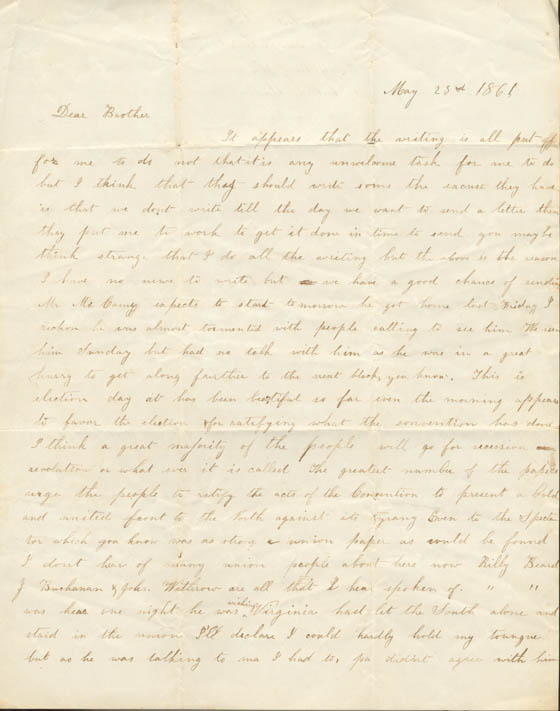 May 23rd 1861
Dear Brother
It appears that the writing is all put off
for me to do not that it is any unwelcome task for me to do
but I think that they should write some the excuse they have
is that we don't write till the day we want to send a letter then
they put me to work to get it done in time to send you maybe
think strange that I do all the writing but the above is the reason
I have no news to write but we have a good chance of sending
Mr Mc expects to start tomorrow he got home last Friday I
reckon he was almost tormented with people calling to see him We seen
him Sunday but had no talk with him as he was in a great
hurry to get along farther to the next block, you know. This is
election day at has been beautiful so far even the morning appears
to favor the election for ratifying what the convention has done
I think a great majority of the people will go for secession
revolution or what ever it is called The greatest number of the papers
urge the people to ratify the acts of the Convention to present a bold
and united front to the North against its tyrany Even to the Specta
tor which you know was as strong a union paper as could be found
I dont hear of many union people about here now Billy Beard
J Buchanan & John. Withrow are all that I hear spoken of. " "
was here one night he was wishing Virginia had let the South alone and
staid in the union I'll declare I could hardly hold my toungue
but as he was talking to ma I had to, pa didint agree with him